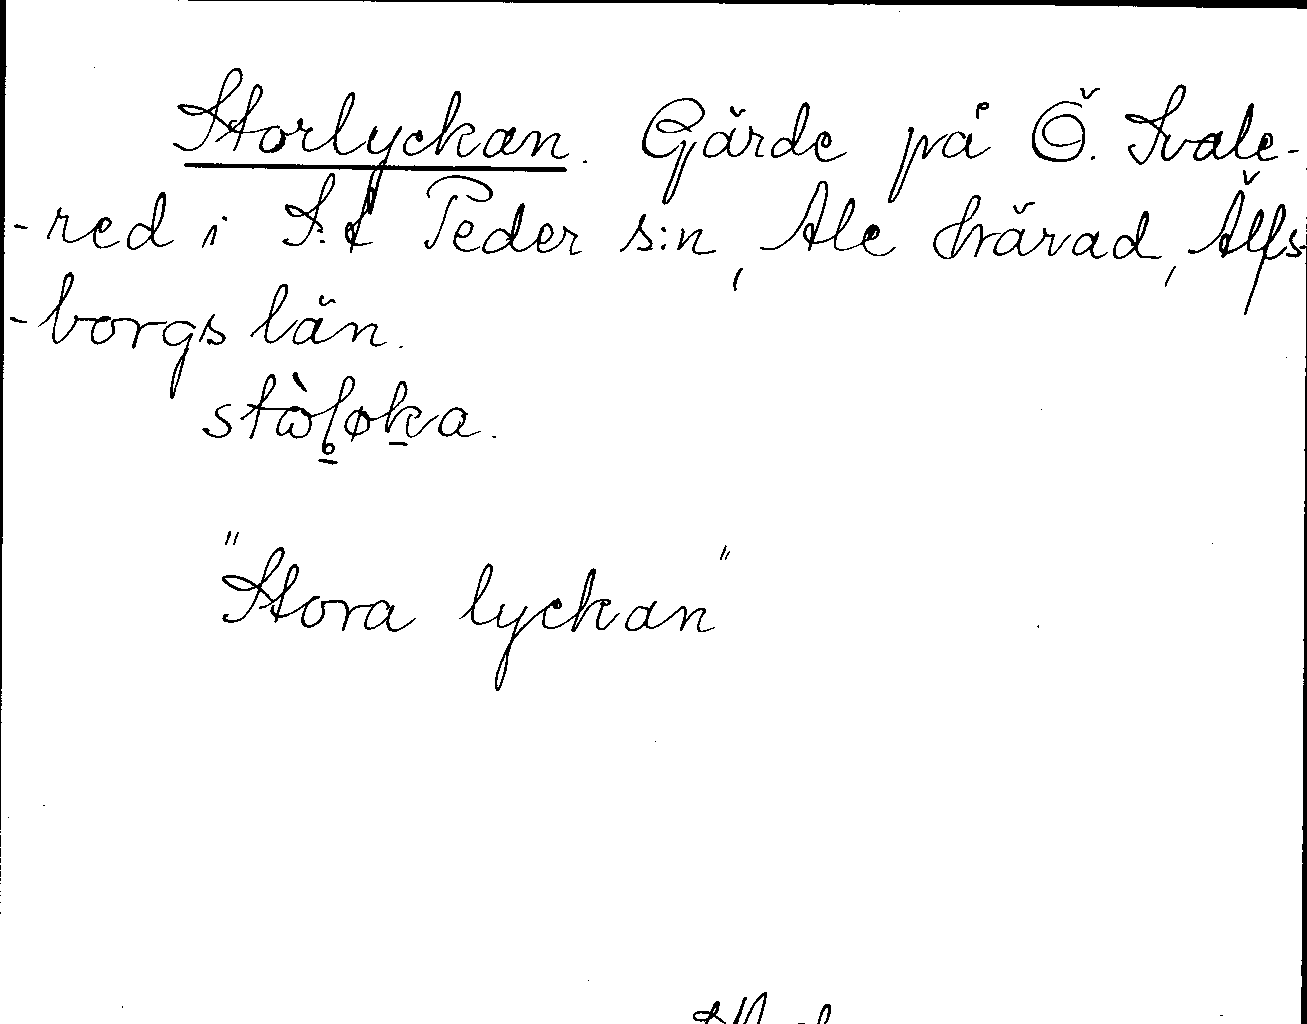 Storlyckan. Gärde på Ö. Svale-
-red i S:t Peder s:n, Ale härad, Älfs
-borgs län.
stɷ̀l̥øka.
"Stora lyckan"